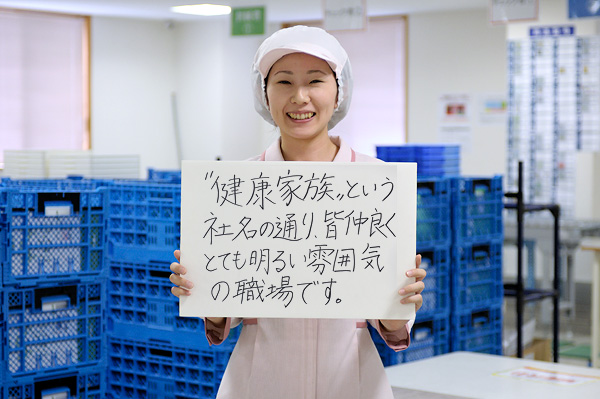 〝健康家族〟という
社名の通り、皆仲良く
とても明るい雰囲気
の職場です。